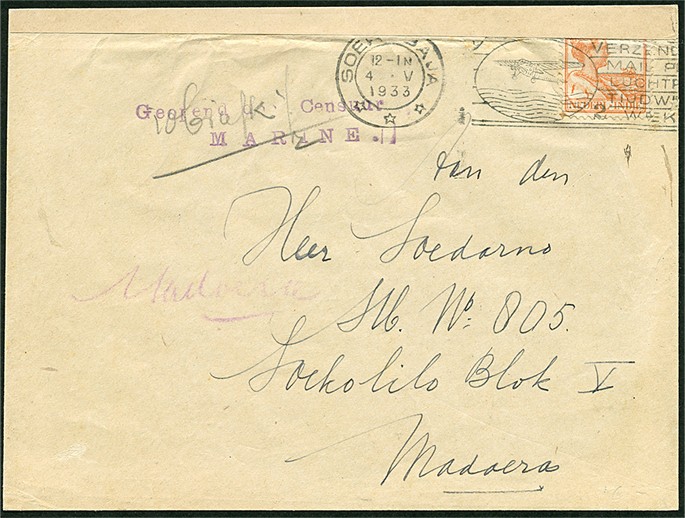 SOERABAJA
12-1N
4 . V
1933
VERZEND
MAIL P
LUCHTP
WEK
Geopend d. Censuur
MARINE.
Aan den
Heer Soedarno
St6. No: 805.
Soekolilo Blok V
Madoera
Madoera